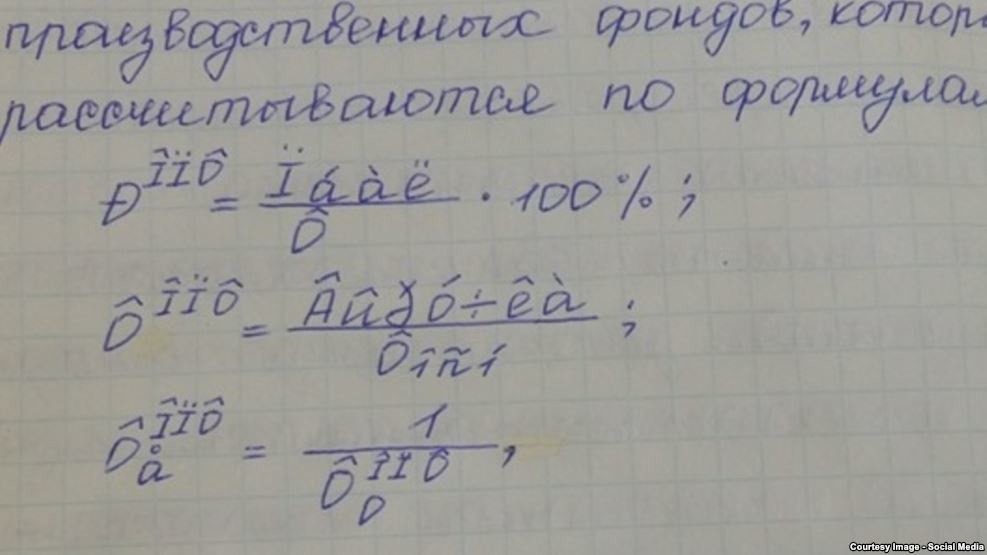 производственных фондов, котор
рассчитываются по формулам
Ð^ÎÏÔ = Ïáàë / Ô · 100%;
Ô^ÎÏÔ = Âûðó÷êà / Ôîñí ;
Ô_å^ÎÏÔ = 1 / Ô_О^ÎÏÔ ,
Courtesy Image - Social Media